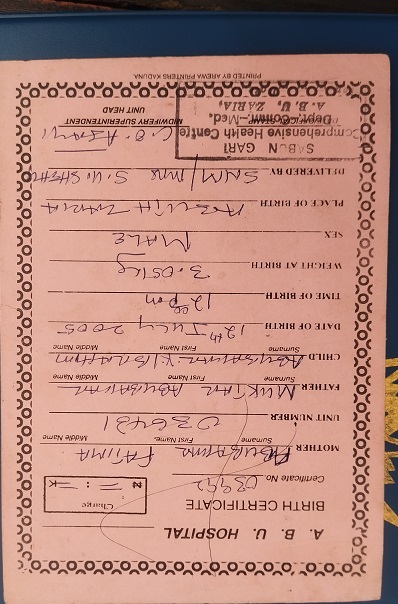 A. B. U. HOSPITAL
BIRTH CERTIFICATE
Charge
N : = K
Certificate No.
MOTHER ABUBAKAR FATIMA
Surname First Name. Middle Name
UNIT NUMBER 036431
FATHER MUKTAR ABUBAKAR
Surname First Name Middle Name
CHILD ABUBAKAR
Surname First Name Middle Name
DATE OF BIRTH 12th JULY 2005
TIME OF BIRTH 12 00 pm
WEIGHT AT BIRTH 3.05kg
SEX MALE
PLACE OF BIRTH ZARIA
DELIVERED BY SNM/
SABON GARI
Comprehensive Health Centre
Dept. Comm. Med.
A. B. U. ZARIA.
MIDWIFERY SUPERINTENDENT
UNIT HEAD
PRINTED BY AREWA PRINTERS KADUNA